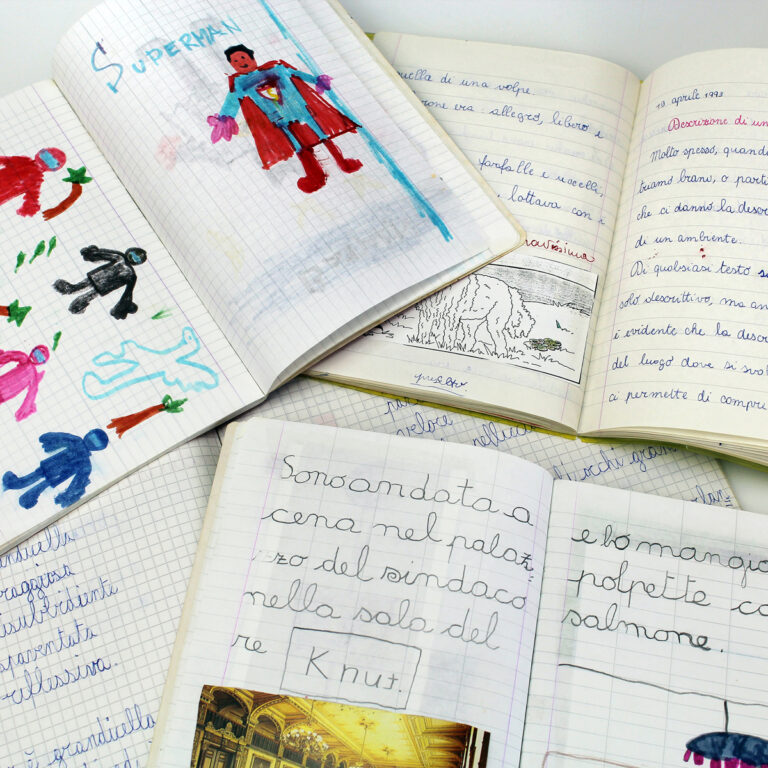 SUPERMAN
uella di una volpe.
rone era: allegro, libero e
farfalle e uccelli,
lottava con i
ravissima
19 aprile 1993
Descrizione di un
Molto spesso, quand
triamo brani, o parti
che ci danno la descr
di un ambiente.
Di qualsiasi testo s
solo descrittivo, ma an
è evidente che la descr
del luogo dove si svol
ci permette di compri
veloce
occhi gran
raggiosa
isubbidiente
spaventata
riflessiva.
è grandicella
Sono andata a
cena nel palaz=
zo del sindaco
nella sala del
re Knut.
e ho mangia
polpette co
salmone.